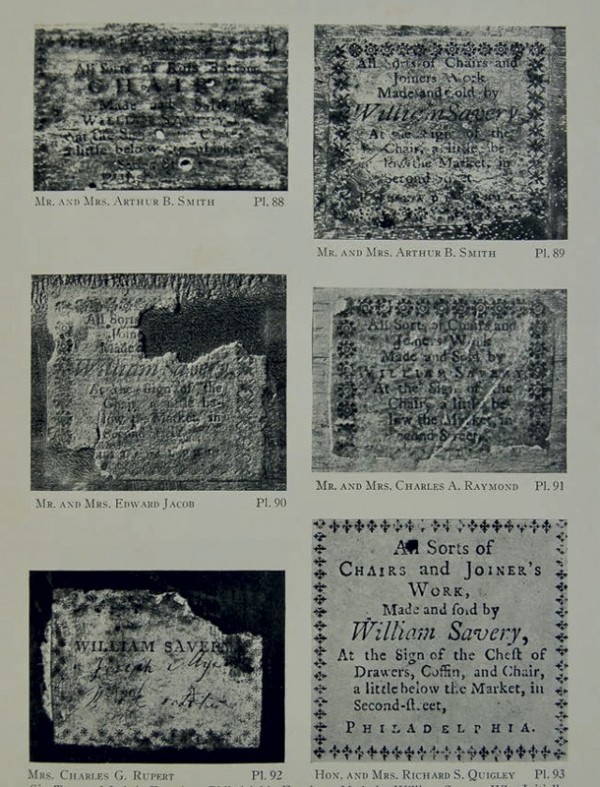 All Sorts of Rush Bottom
CHAIRS
Made and Sold by
WILLIAM SAVERY
at the Sign of the Chair
a little below the Market in
MR. AND MRS. ARTHUR B. SMITH Pl. 88
All Sorts of Chairs and
Joiners Work
Made and Sold by
William Savery
At the Sign of the
Chair, a little be
low the Market, in
Second Street
MR. AND MRS. ARTHUR B. SMITH Pl. 89
All Sorts
Join
Made
William Savery,
At the Sign of the
Chair, a little be
low the Market, in
Second
MR. AND MRS. EDWARD JACOB Pl. 90
All Sorts of Chairs and
Joiners Work
Made and Sold by
WILLIAM SAVERY
At the Sign of the
Chair, a little be
low the Market, in
second Street
MR. AND MRS. CHARLES A. RAYMOND Pl. 91
WILLIAM SAVERY
Joseph
MRS. CHARLES G. RUPERT Pl. 92
All Sorts of
CHAIRS and JOINER'S
WORK,
Made and sold by
William Savery,
At the Sign of the Chest of
Drawers, Coffin, and Chair,
a little below the Market, in
Second-street,
PHILADELPHIA.
HON. AND MRS. RICHARD S. QUIGLEY Pl. 93